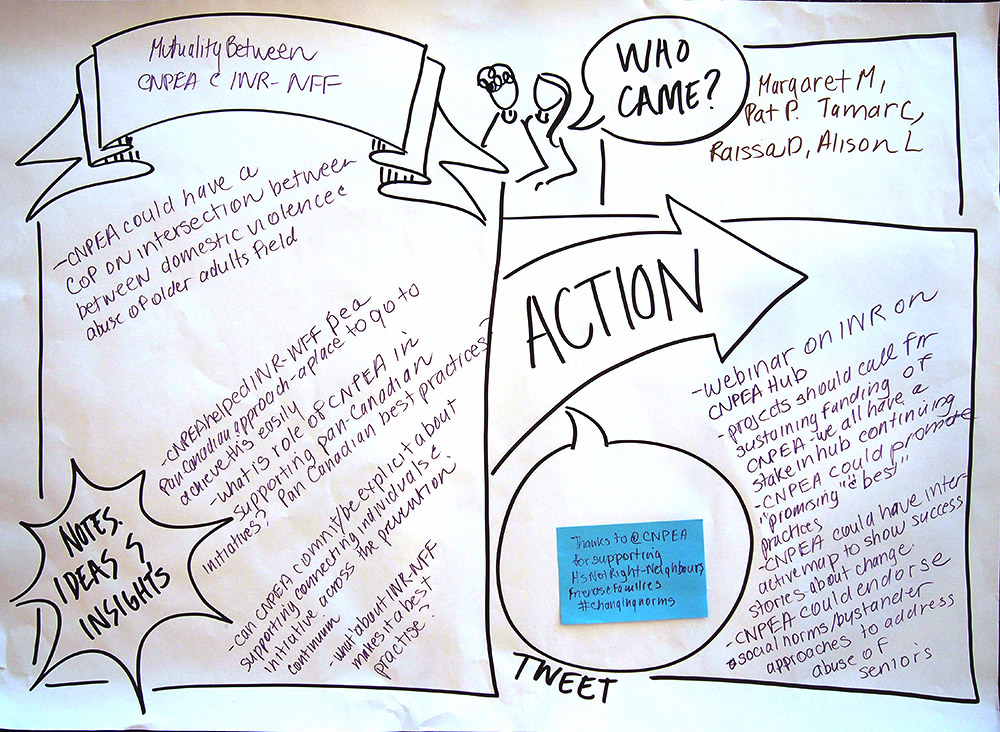 Mutuality Between
CNPEA & INR-NFF
WHO
CAME?
Margaret M,
Pat P. Tamar C,
Raissa D, Alison L
-CNPEA could have a
CoP on intersection between
between domestic violence &
abuse of older adults field
-CNPEA helped INR-NFF pea
Pan Canadian approach-a place to go to
achieve this easily
-what is role of CNPEA in
supporting pan-Canadian
initiatives? Pan Canadian best practices?
-can CNPEA commit/be explicit about
supporting connecting individuals &
initiative across the prevention
continuum
-what about INR-NFF
makes it a best
practise?
NOTES.
IDEAS &
INSIGHTS
ACTION
-webinar on INR on
CNPEA Hub
-projects should call for
sustaining funding of
CNPEA-we all have a
stake in hub continuing
-CNPEA could promote
"promising" & best"
practices
-CNPEA could have inter-
active map to show success
stories about change.
-CNPEA could endorse
social norms/bystander
approaches to address
abuse of
seniors
Thanks to @CNPEA
for supporting
It'sNotRight-Neighbours,
Friends&Families
#changingnorms
TWEET